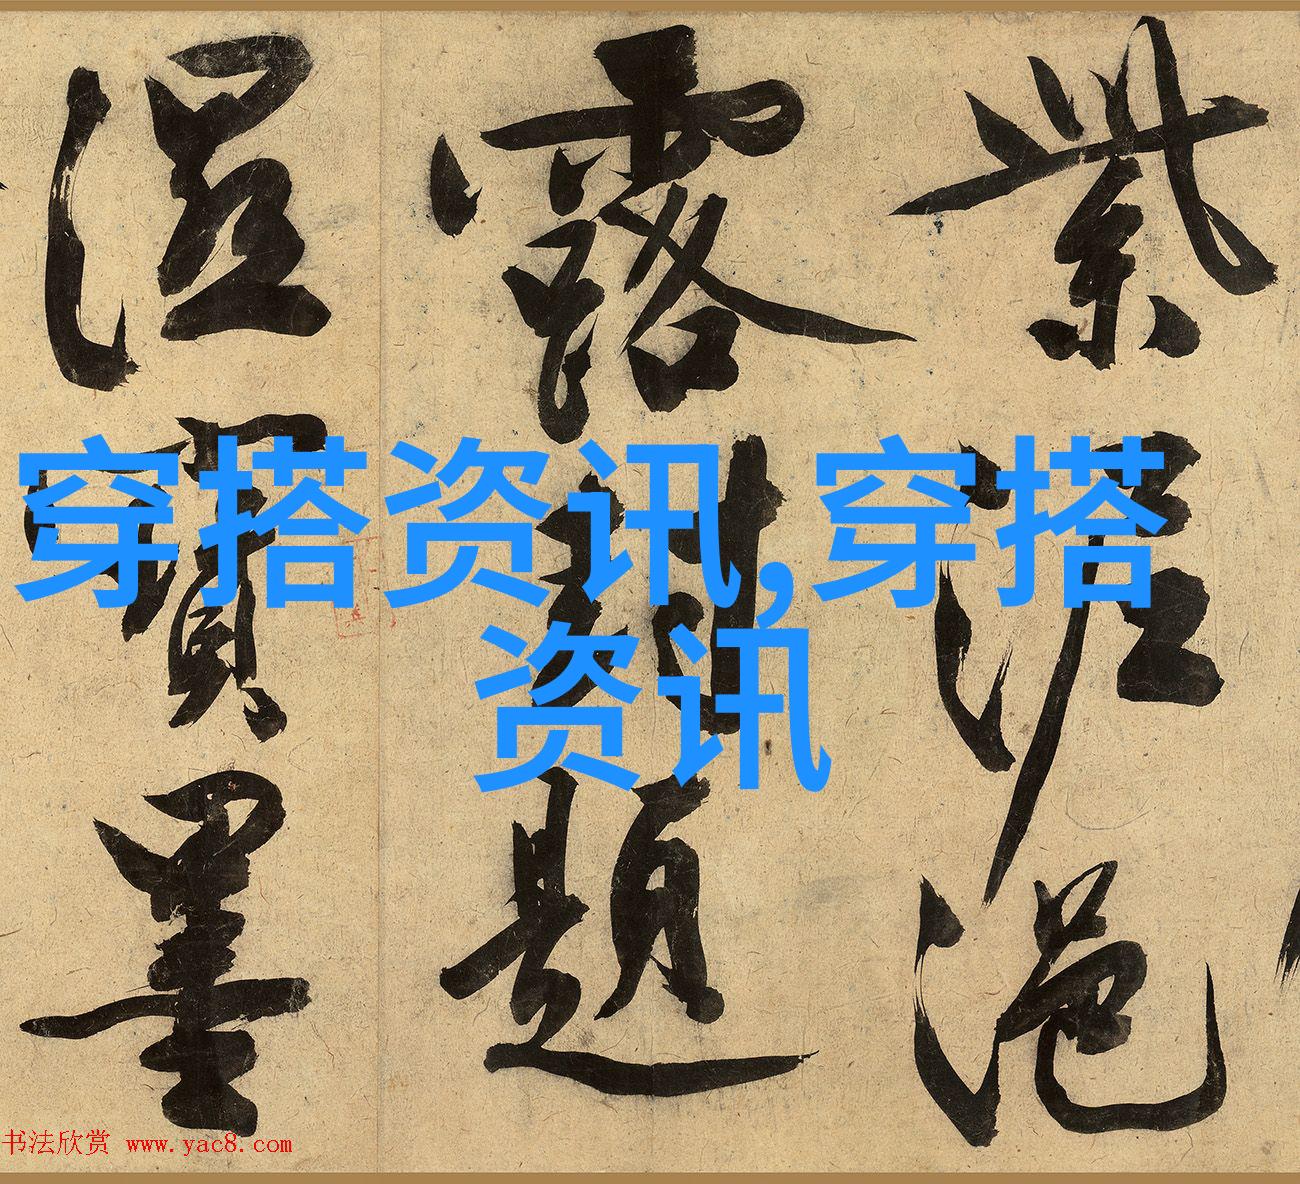 紫泥浥
露封題
濕寶墨
穿搭资讯,穿搭
资讯
书法欣赏 www.yac8.com